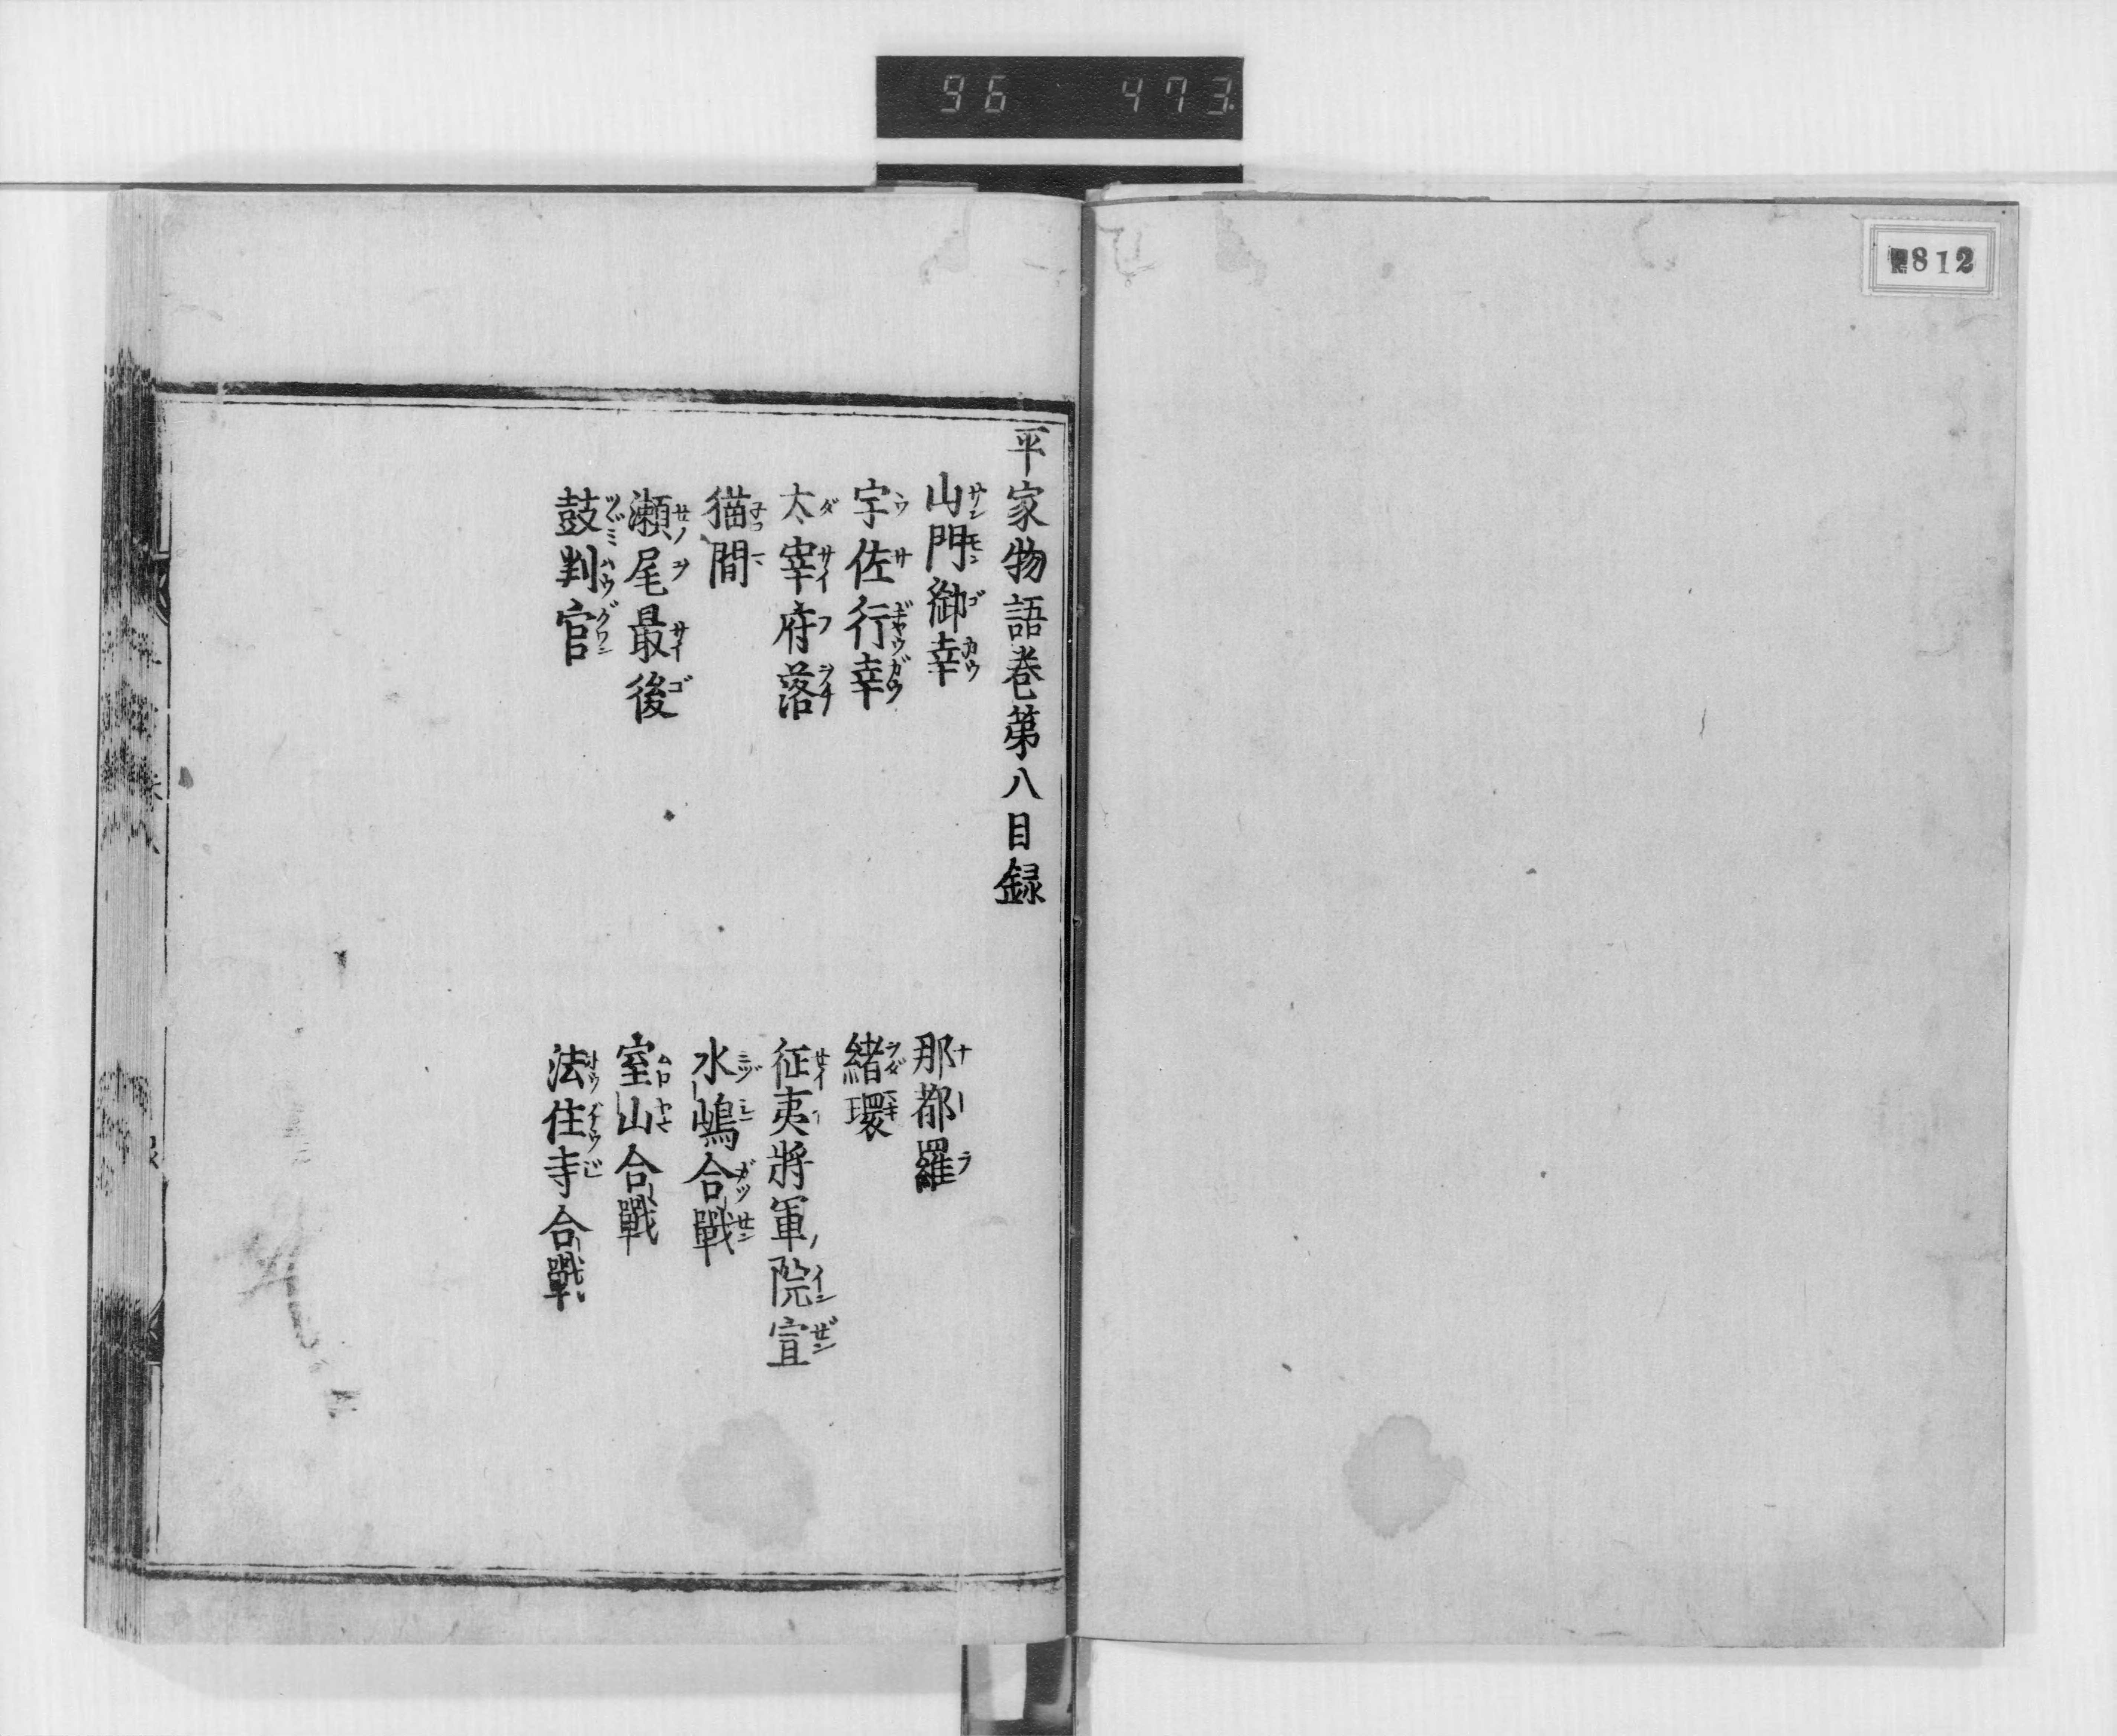 96 473
812
平家物語巻第八目録
山門御幸
那都羅
宇佐行幸
緒環
太宰府落
征夷將軍ノ院宣
猫間
水嶋合戰
瀬尾最後
室山合戰
鼓判官
法住寺合戰